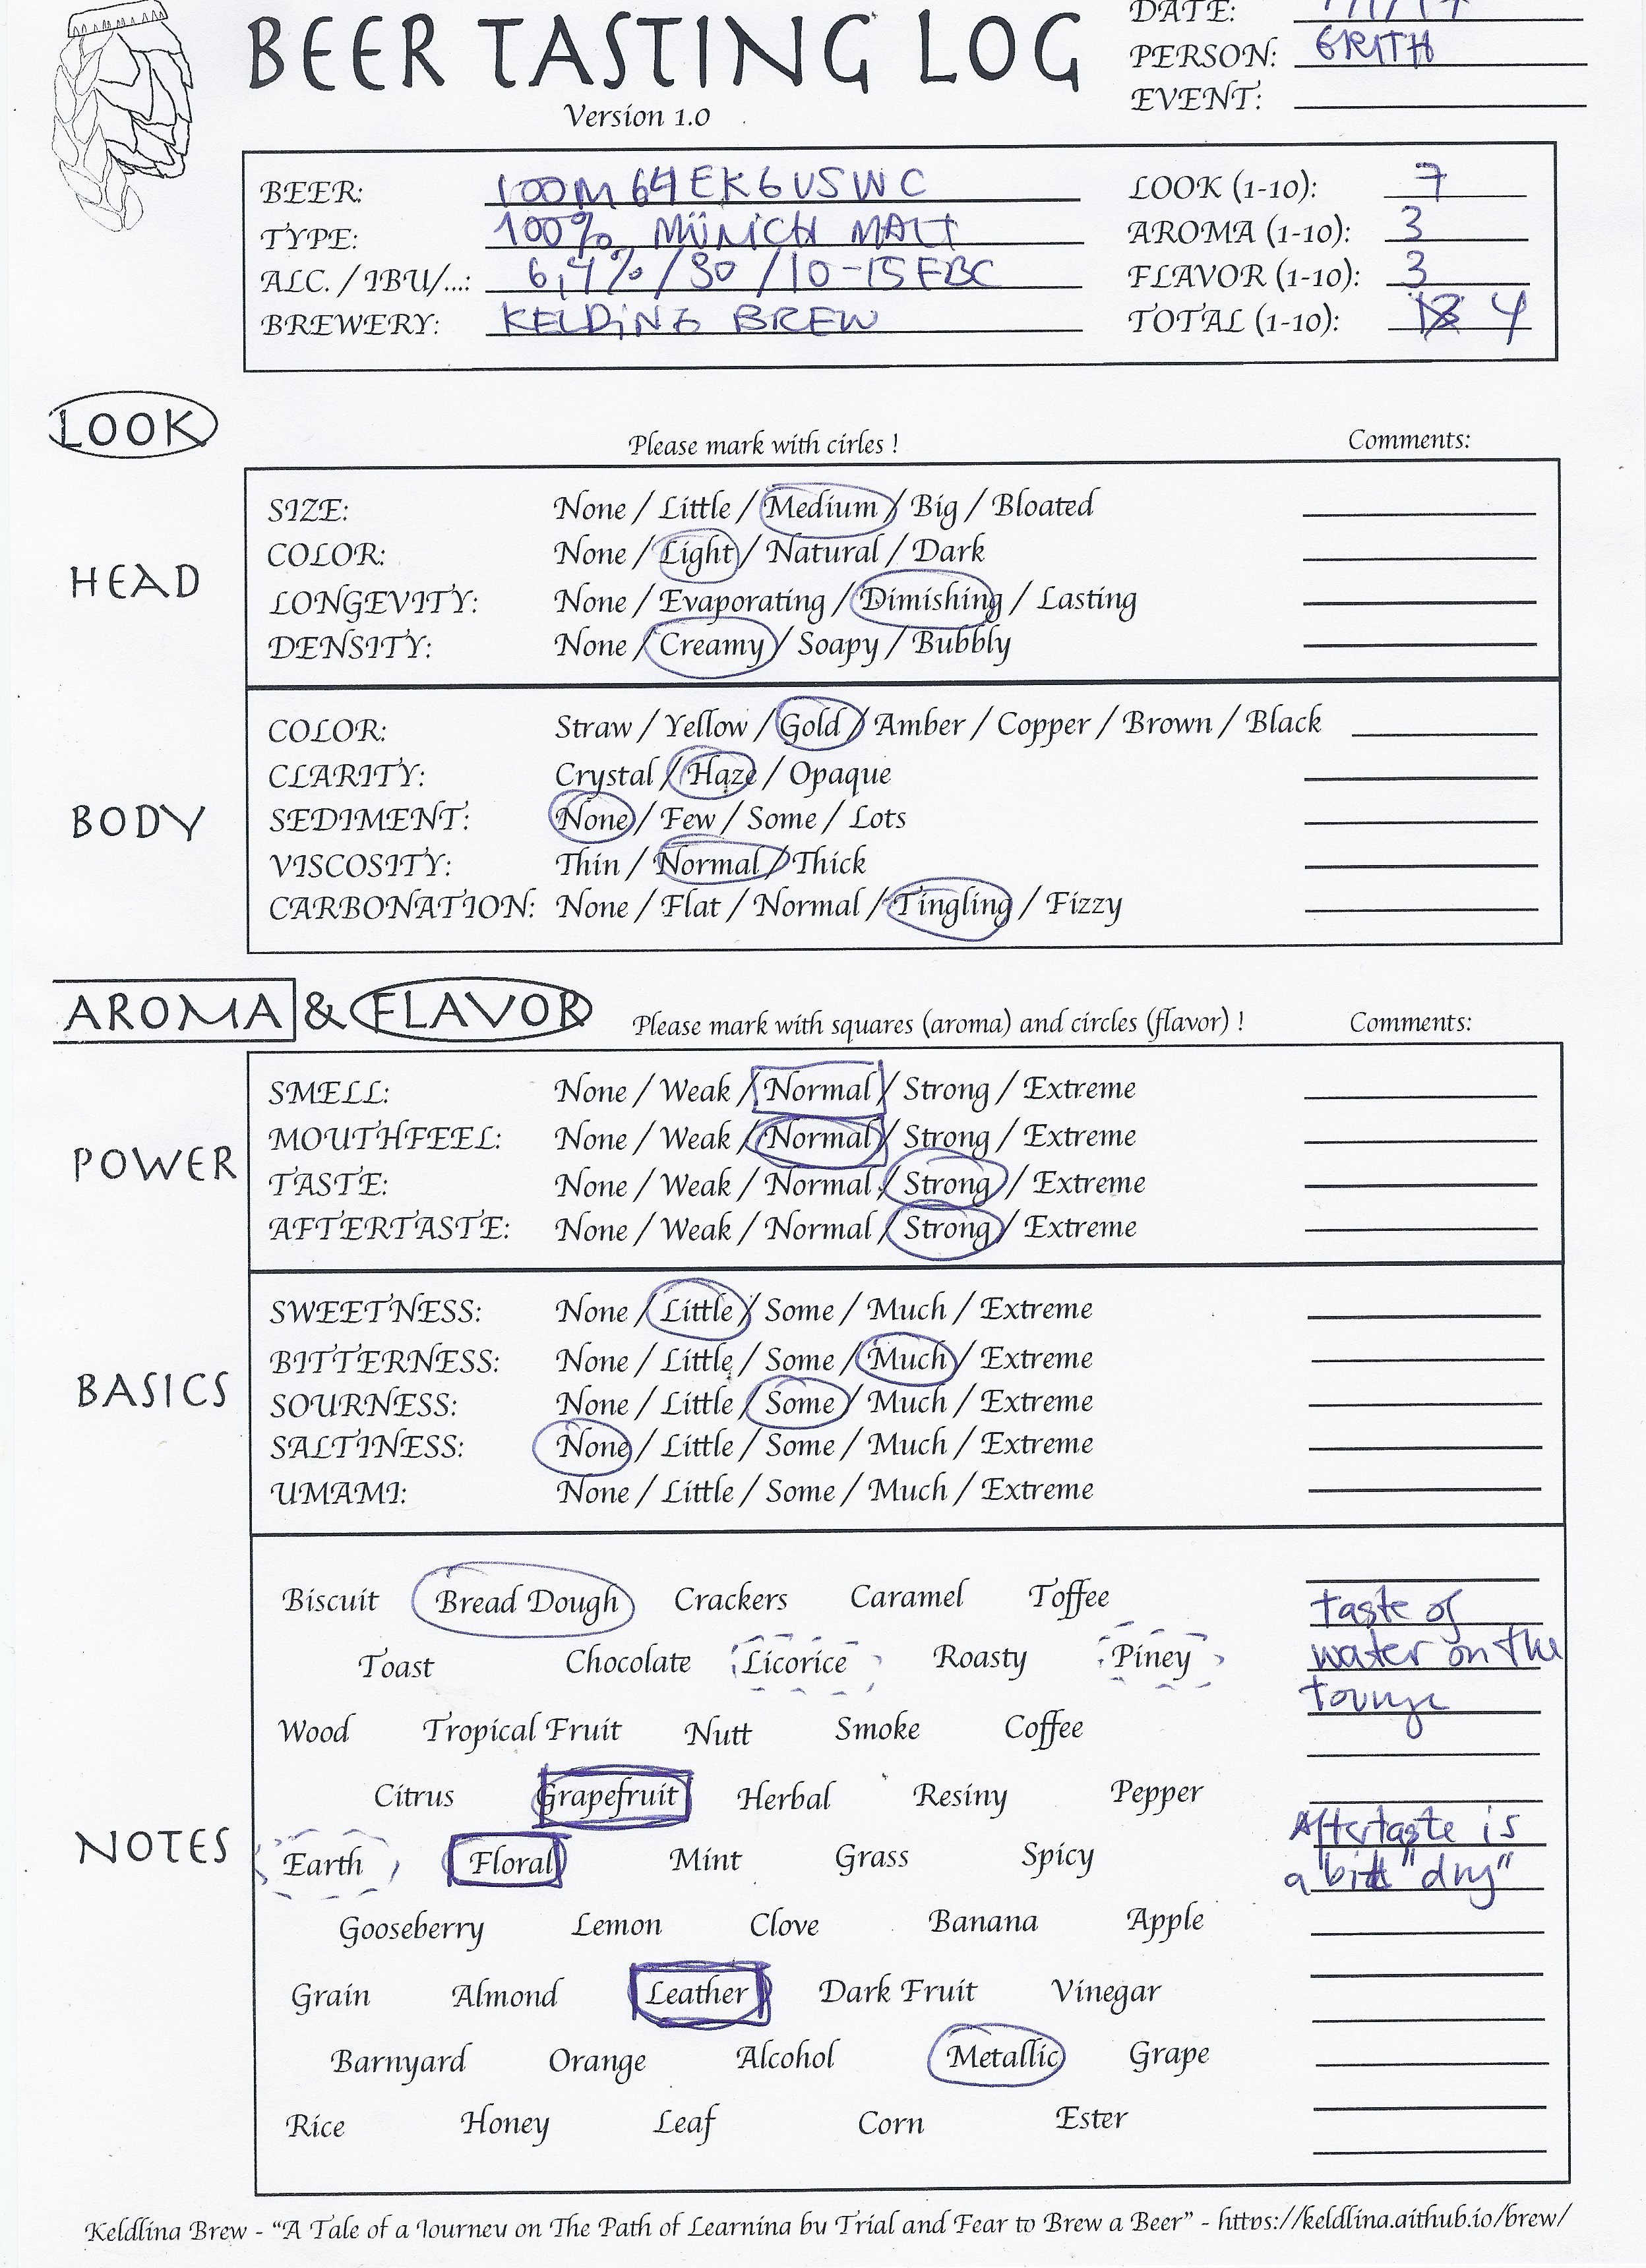 BEER TASTING LOG
Version 1.0
DATE:
PERSON: GRITH
EVENT:
BEER: 100M64EK6USWC
TYPE: 100% MÜNICH MALT
ALC. / IBU/...: 6,4% / 30 / 10-15 EBC
BREWERY: KELDING BREW
LOOK (1-10): 7
AROMA (1-10): 3
FLAVOR (1-10): 3
TOTAL (1-10): 4
LOOK
Please mark with cirles !
Comments:
HEAD
SIZE: None / Little / Medium / Big / Bloated
COLOR: None / Light / Natural / Dark
LONGEVITY: None / Evaporating / Dimishing / Lasting
DENSITY: None / Creamy / Soapy / Bubbly
BODY
COLOR: Straw / Yellow / Gold / Amber / Copper / Brown / Black
CLARITY: Crystal / Haze / Opaque
SEDIMENT: None / Few / Some / Lots
VISCOSITY: Thin / Normal / Thick
CARBONATION: None / Flat / Normal / Tingling / Fizzy
AROMA & FLAVOR
Please mark with squares (aroma) and circles (flavor) !
Comments:
POWER
SMELL: None / Weak / Normal / Strong / Extreme
MOUTHFEEL: None / Weak / Normal / Strong / Extreme
TASTE: None / Weak / Normal / Strong / Extreme
AFTERTASTE: None / Weak / Normal / Strong / Extreme
BASICS
SWEETNESS: None / Little / Some / Much / Extreme
BITTERNESS: None / Little / Some / Much / Extreme
SOURNESS: None / Little / Some / Much / Extreme
SALTINESS: None / Little / Some / Much / Extreme
UMAMI: None / Little / Some / Much / Extreme
NOTES
Biscuit Bread Dough Crackers Caramel Toffee
Toast Chocolate Licorice Roasty Piney
Wood Tropical Fruit Nutt Smoke Coffee
Citrus Grapefruit Herbal Resiny Pepper
Earth Floral Mint Grass Spicy
Gooseberry Lemon Clove Banana Apple
Grain Almond Leather Dark Fruit Vinegar
Barnyard Orange Alcohol Metallic Grape
Rice Honey Leaf Corn Ester
taste of
water on the
tounge
Aftertaste is
a bitt "dry"
Keldling Brew - "A Tale of a Journey on The Path of Learning by Trial and Fear to Brew a Beer" - https://keldling.github.io/brew/